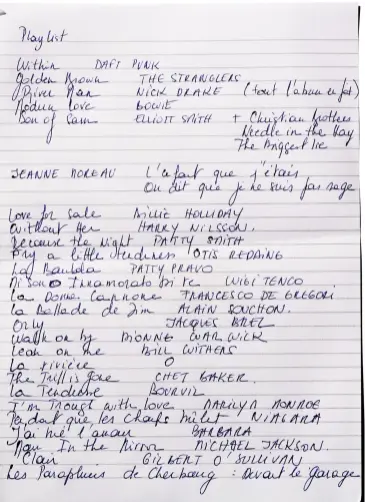 Playlist
Within DAFT PUNK
Golden Brown THE STRANGLERS
River Man NICK DRAKE (tout l'album en fait)
Modern Love BOWIE
Son of Sam ELLIOTT SMITH + Christian brothers
Needle in the Hay
The Biggest lie
JEANNE MOREAU L'enfant que j'étais
On dit que je ne suis pas sage
Love for Sale BILLIE HOLLIDAY
Without Her HARRY NILSSON.
Because the Night PATTY SMITH
Try a little tenderness OTIS REDDING
La Bambola PATTY PRAVO
Mi Sono Innamorato di te LUIGI TENCO
La Donna Cannone FRANCESCO DE GREGORI
La Ballade de Jim ALAIN SOUCHON.
Orly JACQUES BREL
Walk on by DIONNE WARWICK
Lean on me BILL WITHERS
La rivière O
The Thrill is gone CHET BAKER.
La Tendresse BOURVIL
I'm Through with love MARILYN MONROE
Pendant que les Champs brûlent NIAGARA
J'ai tué l'amour BARBARA
Man In the Mirror MICHAEL JACKSON.
Clair GILBERT O'SULLIVAN
Les Parapluies de Cherbourg : Devant le garage